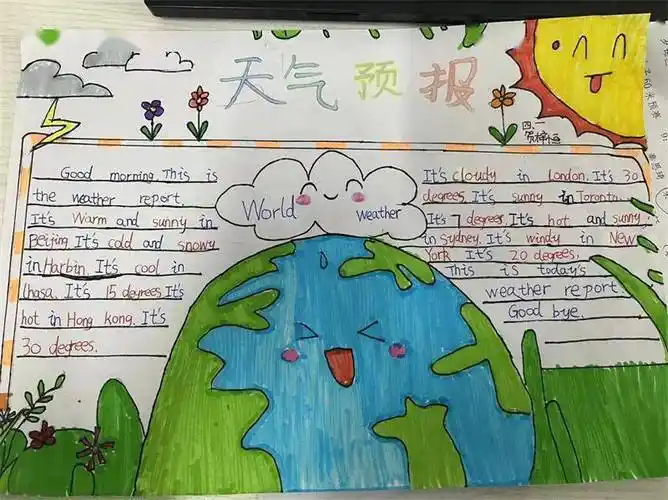 天气预报
四、一
Good morning. This is
the weather report.
It's Warm and sunny in
Beijing. It's cold and snowy
in Harbin. It's cool in
lhasa. It's 15 degrees It's
hot in Hong kong. It's
30 degrees.
World
Weather
It's cloudy in london. It's 30
degrees. It's sunny in Toronto.
It's 7 degree. It's hot and sunny
in Sydney. It's windy in New
York It's 20 degrees.
This is today's
weather report.
Good bye.